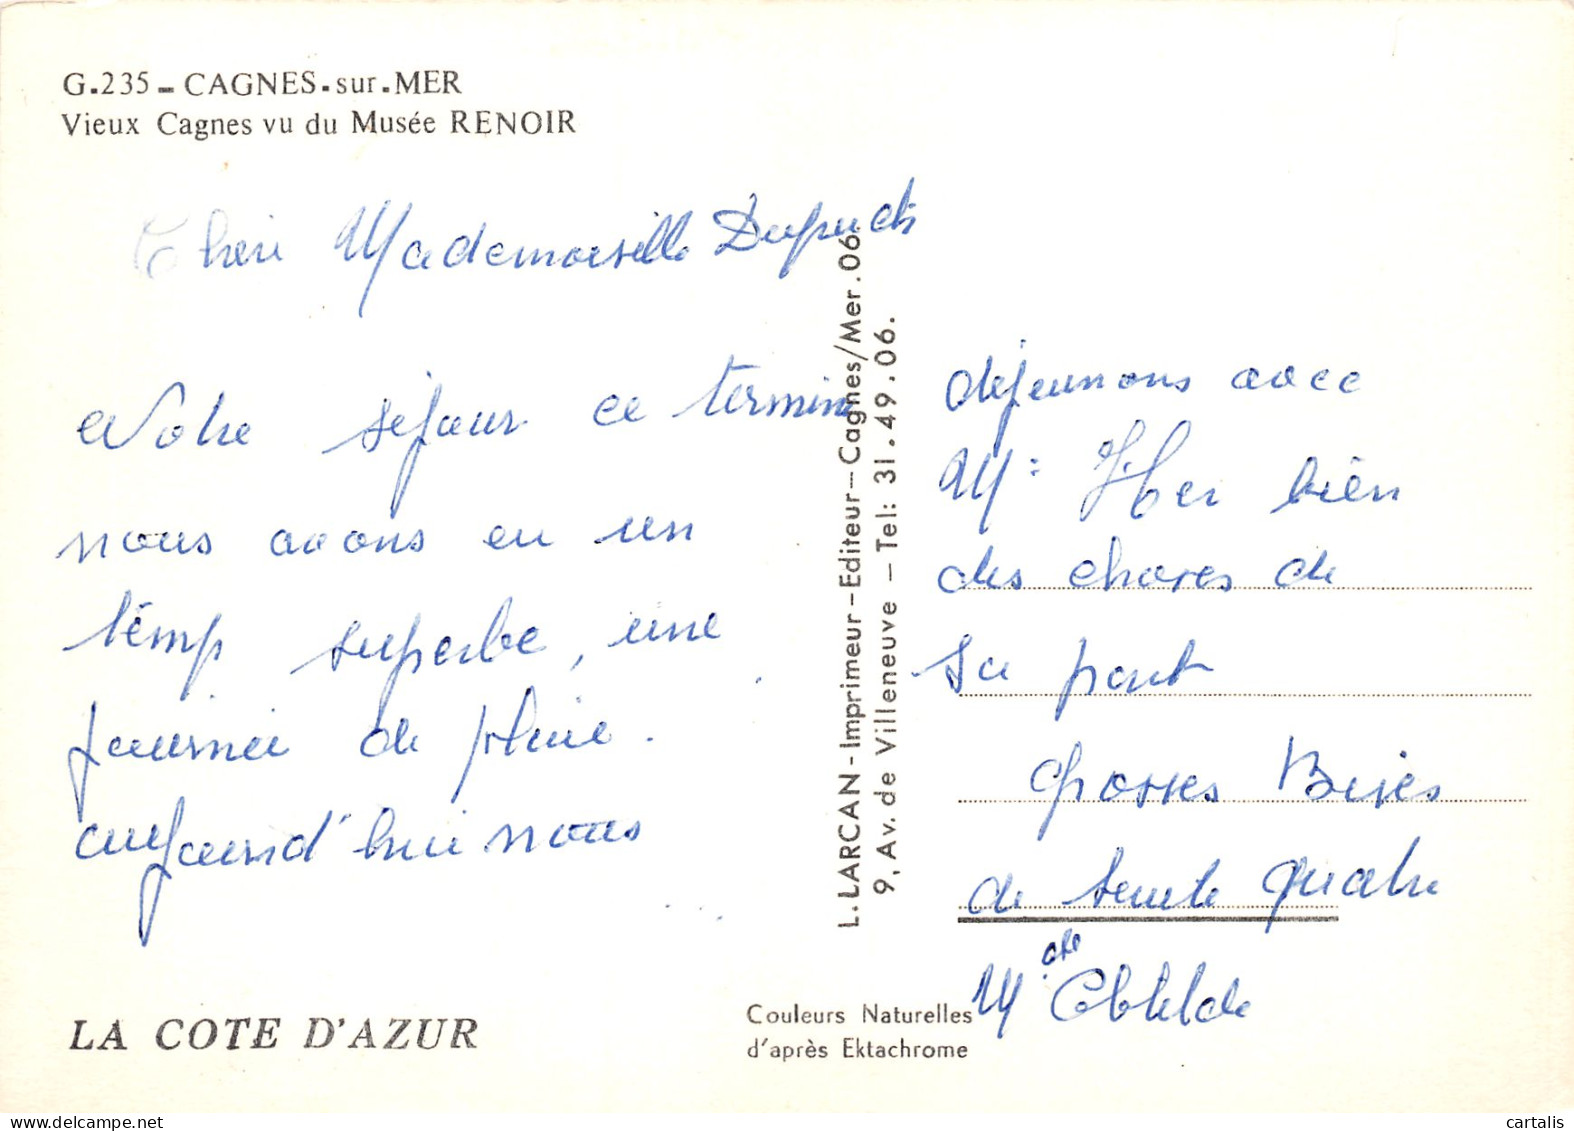 G.235 - CAGNES.sur.MER
Vieux Cagnes vu du Musée RENOIR
Mademoiselle
Notre séjour ce termine
nous avons eu un
temp superbe, une
journée de pluie.
aujourd'hui nous
LA COTE D'AZUR
L. LARCAN - Imprimeur - Editeur - Cagnes/Mer. 06
9, Av. de Villeneuve - Tel: 31.49.06.
déjeunons avec
bien
des choses de
sa part
Grosses Bises
de
Couleurs Naturelles
d'après Ektachrome
cartalis